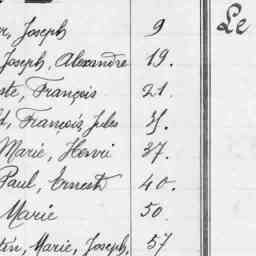 Joseph 9
Joseph, Alexandre 19.
François 21.
François, Jules 31.
Marie, Henri 37.
Paul, Ernest 40.
Marie 50.
Marie, Joseph, 57
Le